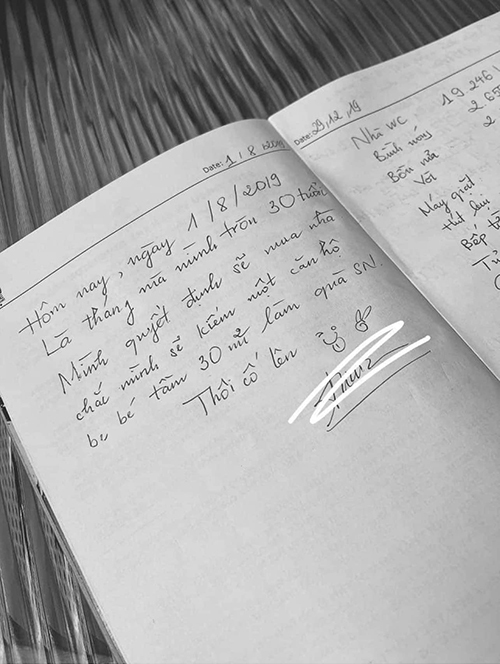 Date: 1 / 8 / 2019
Hôm nay, ngày 1/8/2019
Là tháng nữa mình tròn 30 tuổi
Mình quyết định sẽ mua nhà
chắc mình sẽ kiếm một căn hộ
be bé tầm 30 m² làm quà SN.
Thôi cố lên
Date: 29, 12, 19
Nhà WC 19.246
Bình nóng 2 655
Bồn rửa 2
Vòi
Máy giặt
Hút
Bếp